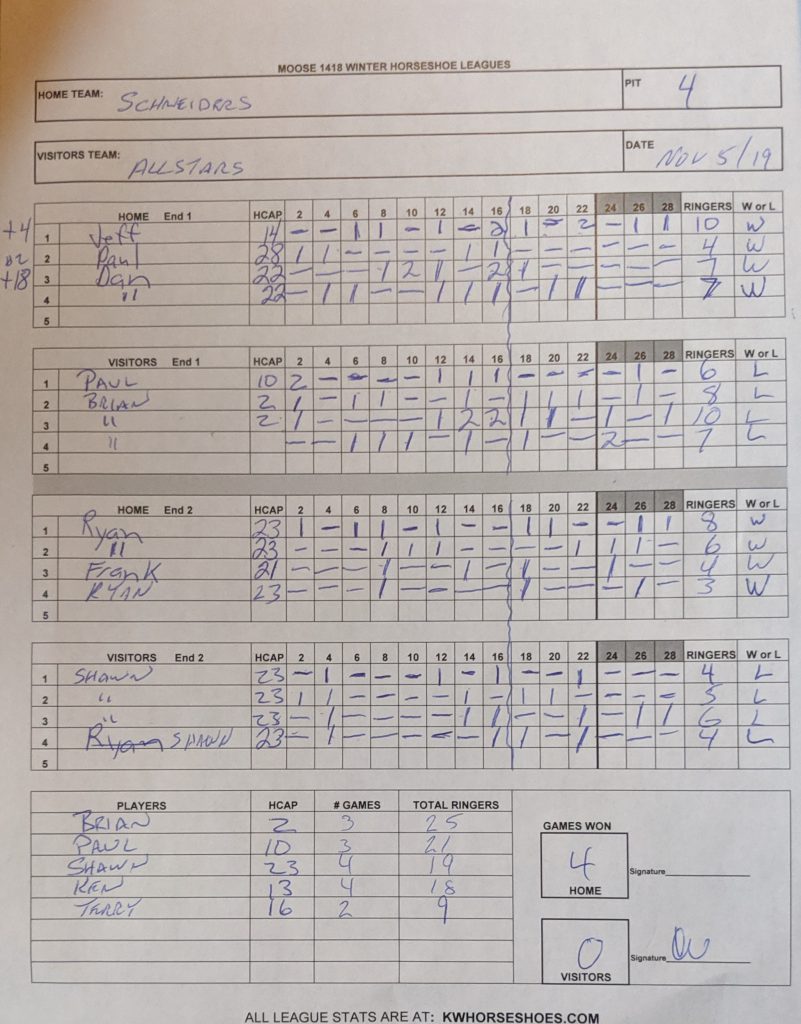 MOOSE 1418 WINTER HORSESHOE LEAGUES
HOME TEAM: SCHNEIDERS PIT 4
VISITORS TEAM: ALLSTARS DATE NOV 5/19
HOME End 1 HCAP 2 4 6 8 10 12 14 16 18 20 22 24 26 28 RINGERS W or L
+4 1 Jeff 14 - - 1 1 - 1 - 2 1 - 2 - 1 1 10 W
2 Paul 28 1 1 - - - - 1 1 - - - - - - 4 W
+18 3 Dan 22 - - - 1 2 1 - 2 1 - - - - - 7 W
4 " 22 - 1 1 - - 1 1 1 - 1 1 - - - 7 W
5
VISITORS End 1 HCAP 2 4 6 8 10 12 14 16 18 20 22 24 26 28 RINGERS W or L
1 PAUL 10 2 - - - - 1 1 1 - - - - 1 - 6 L
2 BRIAN 2 1 - 1 1 - - - 1 1 1 - 1 - 8 L
3 " 2 1 - - - - 1 2 2 1 1 - 1 - 1 10 L
4 " - - 1 1 1 - 1 - 1 - - 2 - - 7 L
5
HOME End 2 HCAP 2 4 6 8 10 12 14 16 18 20 22 24 26 28 RINGERS W or L
1 Ryan 23 1 - 1 1 - 1 - - 1 1 - - 1 1 8 W
2 " 23 - - - 1 1 1 - - - - 1 1 1 - 6 W
3 Frank 21 - - - 1 - - 1 - 1 - - 1 - - 4 W
4 RYAN 23 - - - 1 - - - - 1 - - - 1 - 3 W
5
VISITORS End 2 HCAP 2 4 6 8 10 12 14 16 18 20 22 24 26 28 RINGERS W or L
1 SHAWN 23 - 1 - - - 1 - 1 - - 1 - - - 4 L
2 " 23 1 1 - - - - 1 - 1 1 - - - - 5 L
3 " 23 - 1 - - - - 1 1 - - 1 - 1 1 6 L
4 Ryan SHAWN 23 - 1 - - - - - 1 1 - 1 - - - 4 L
5
PLAYERS HCAP # GAMES TOTAL RINGERS
BRIAN 2 3 25
PAUL 10 3 21
SHAWN 23 4 19
KEN 13 4 18
TERRY 16 2 9
GAMES WON
4
HOME
Signature
0
VISITORS
Signature
ALL LEAGUE STATS ARE AT: KWHORSESHOES.COM